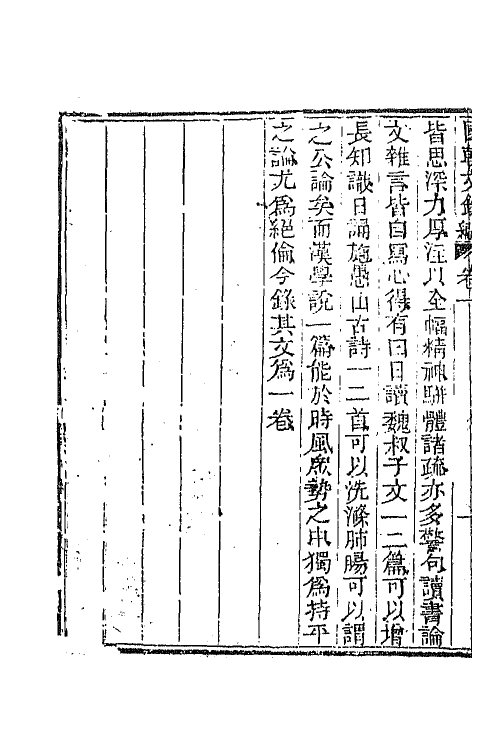 國朝文錄續編 卷一
皆思深力厚注以全幅精神駢體諸疏亦多警句讀書論
文雜言皆自寫心得有曰日讀魏叔子文一二篇可以增
長知識日誦施愚山古詩一二首可以洗滌肺腸可以謂
之公論矣而漢學說一篇能於時風衆勢之中獨爲持平
之論尤爲絕倫今錄其文爲一卷